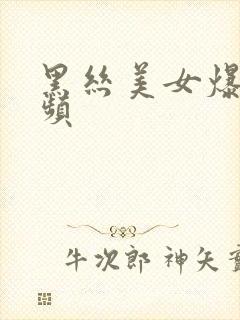 黑丝美女爆
频
牛次郎 神矢